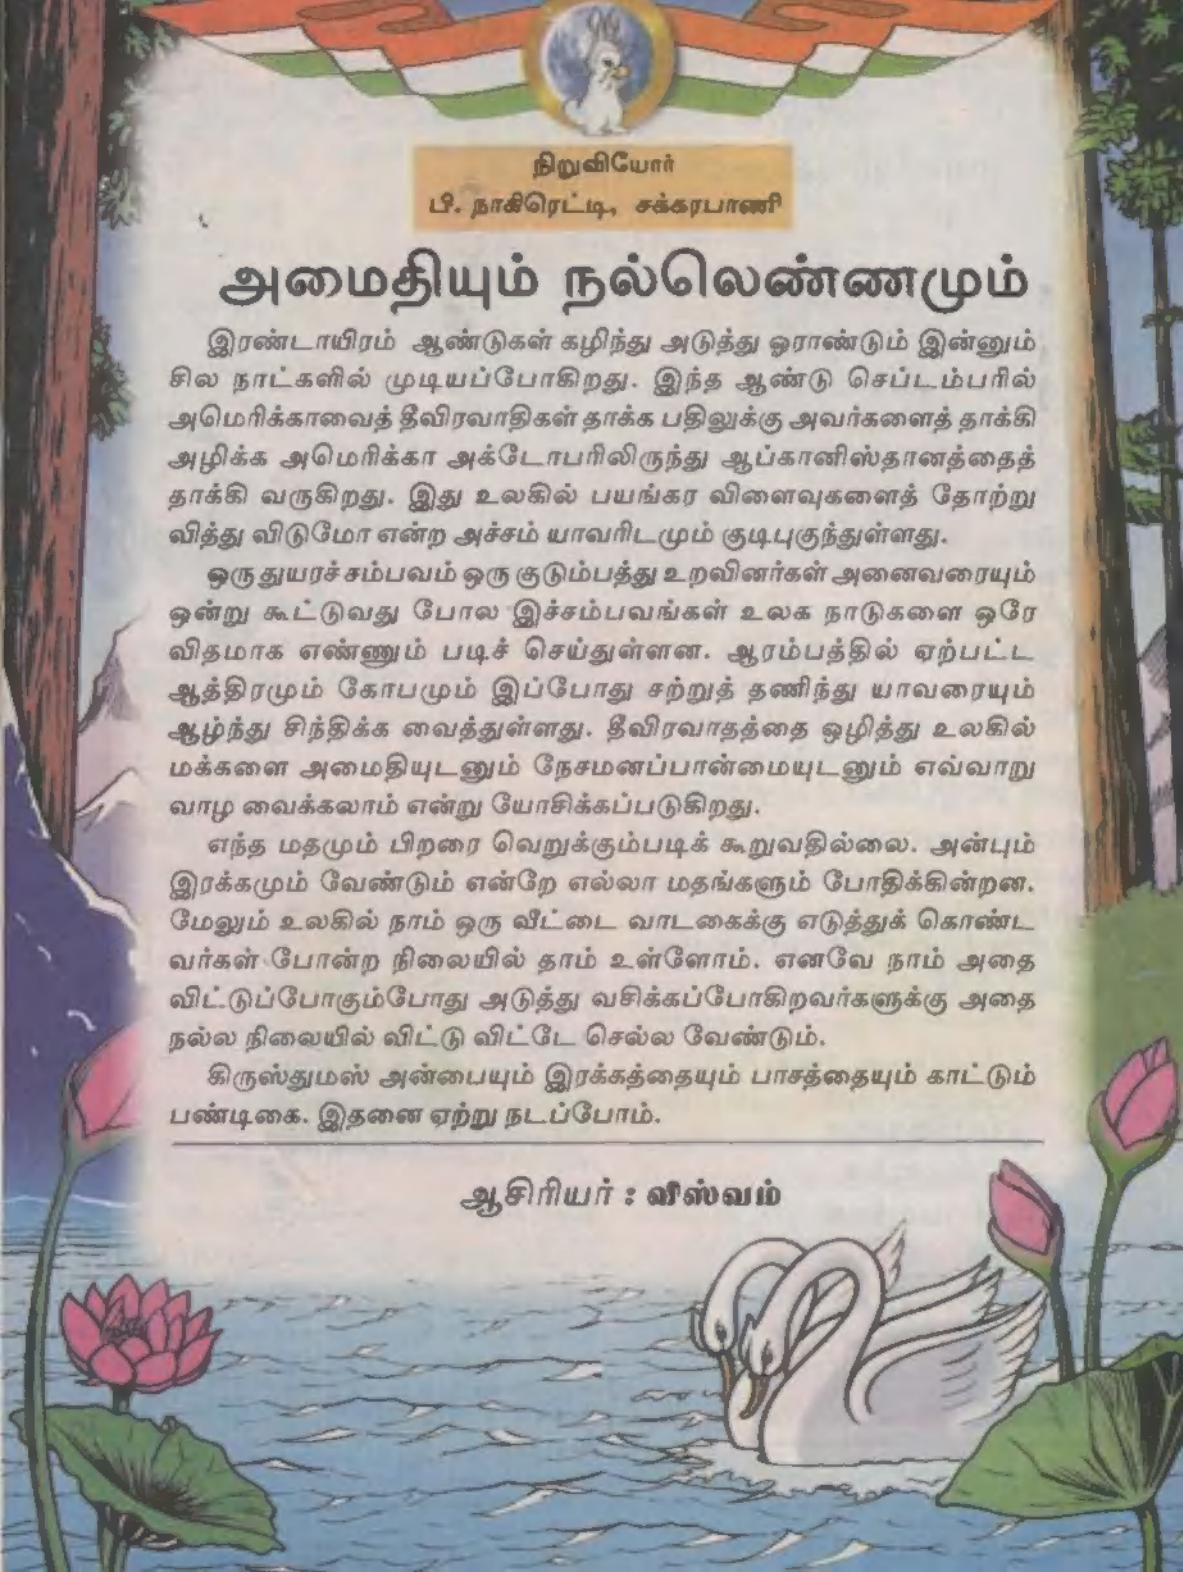 நிறுவியோர்
பி. நாகிரெட்டி, சக்கரபாணி
அமைதியும் நல்லெண்ணமும்
இரண்டாயிரம் ஆண்டுகள் கழிந்து அடுத்து ஓராண்டும் இன்னும்
சில நாட்களில் முடியப்போகிறது. இந்த ஆண்டு செப்டம்பரில்
அமெரிக்காவைத் தீவிரவாதிகள் தாக்க பதிலுக்கு அவர்களைத் தாக்கி
அழிக்க அமெரிக்கா அக்டோபரிலிருந்து ஆப்கானிஸ்தானத்தைத்
தாக்கி வருகிறது. இது உலகில் பயங்கர விளைவுகளைத் தோற்று
வித்து விடுமோ என்ற அச்சம் யாவரிடமும் குடிபுகுந்துள்ளது.
ஒரு துயரச் சம்பவம் ஒரு குடும்பத்து உறவினர்கள் அனைவரையும்
ஒன்று கூட்டுவது போல இச்சம்பவங்கள் உலக நாடுகளை ஒரே
விதமாக எண்ணும் படிச் செய்துள்ளன. ஆரம்பத்தில் ஏற்பட்ட
ஆத்திரமும் கோபமும் இப்போது சற்றுத் தணிந்து யாவரையும்
ஆழ்ந்து சிந்திக்க வைத்துள்ளது. தீவிரவாதத்தை ஒழித்து உலகில்
மக்களை அமைதியுடனும் நேசமனப்பான்மையுடனும் எவ்வாறு
வாழ வைக்கலாம் என்று யோசிக்கப்படுகிறது.
எந்த மதமும் பிறரை வெறுக்கும்படிக் கூறுவதில்லை. அன்பும்
இரக்கமும் வேண்டும் என்றே எல்லா மதங்களும் போதிக்கின்றன.
மேலும் உலகில் நாம் ஒரு வீட்டை வாடகைக்கு எடுத்துக் கொண்ட
வர்கள் போன்ற நிலையில் தாம் உள்ளோம். எனவே நாம் அதை
விட்டுப்போகும்போது அடுத்து வசிக்கப்போகிறவர்களுக்கு அதை
நல்ல நிலையில் விட்டு விட்டே செல்ல வேண்டும்.
கிருஸ்துமஸ் அன்பையும் இரக்கத்தையும் பாசத்தையும் காட்டும்
பண்டிகை. இதனை ஏற்று நடப்போம்.
ஆசிரியர் : விஸ்வம்